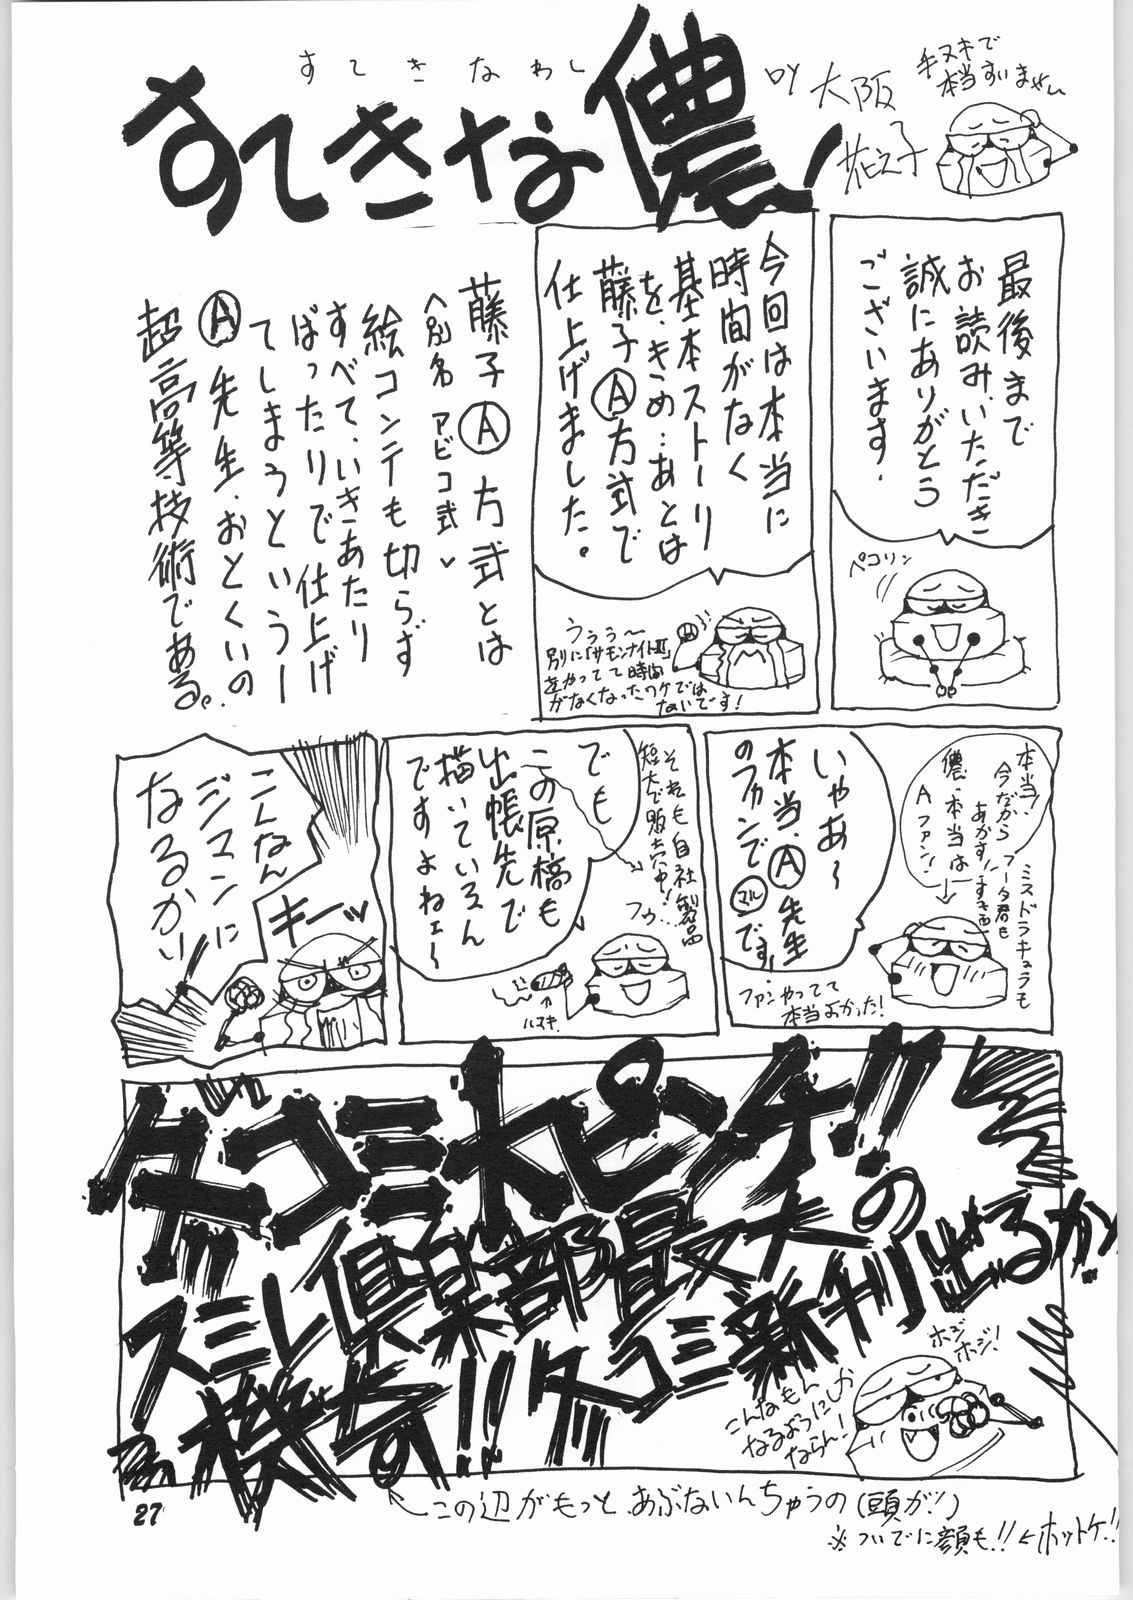 すてきなわし
すてきな儂!
BY 大阪
花之子
手ヌキで
本当すいません
最後まで
お読みいただき
誠にありがとう
ございます.
ペコリン
今回は本当に
時間がなく
基本ストーリー
を、きめ…あとは
藤子Ⓐ方式で
仕上げました。
うぅぅ〜
別に「サモンナイトⅡ」
をやってて時間
がなくなったワケでは
ないです!
藤子Ⓐ方式とは
(別名アビコ式)
絵コンテも切らず
すべて、いきあたり
ばったりで仕上げ
てしまうというー
Ⓐ先生、おとくいの
超高等技術である。
本当!
今だから
あかす!
儂、本当は
Aファン!
ミスドラキュラも
フータ君も
すき
いやあ〜
本当、Ⓐ先生
のファンで
マル
です。
ファンやってて
本当よかった!
でも
この原稿も
出張先で
描いているん
ですよねェ〜
それも自社製品
短大で販売中!
フゥ…
ハヌキ
こんなん
ジマンに
なるかい
キーッ
ダコミ大ピンチ!!
スミレ倶楽部最大の
危機せまる!!ダコミ新刊出るか!
ホジ
ホジ!
こんなもん
なるようにしか
ならん!
この辺がもっと、あぶないんちゅうの(頭が!)
※ついでに顔も!!←ホットケ!!
27